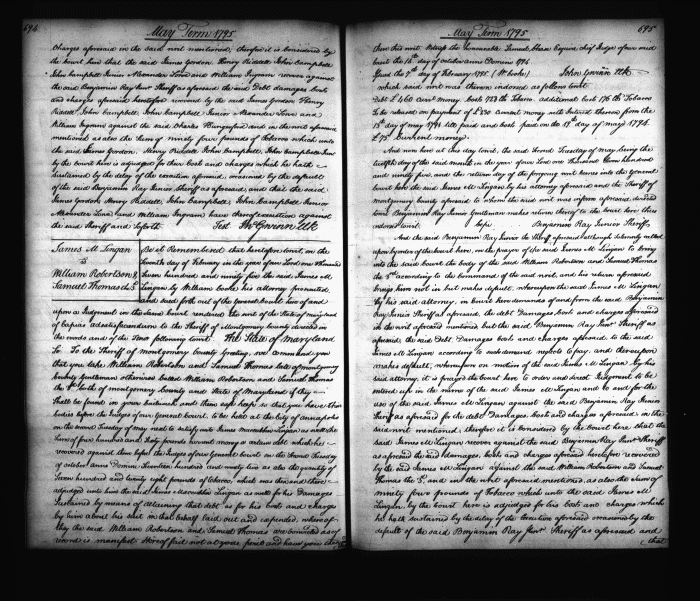 694
May Term 1795
Charges aforesaid in the said writ mentioned; therefore it is considered by
the Court here that the said James Gordon Henry Riddell John Campbell
John Campbell Junior Alexander Lowe and William Ingram recover against
the said Benjamin Ray Junr Sheriff as aforesaid the said Debt damages Costs
and charges aforesaid heretofore recovered by the said James Gordon Henry
Riddell, John Campbell, John Campbell Junior Alexander Lowe and
William Ingram against the said Charles Hungerford and in the writ aforesaid
mentioned as also the Sum of ninety four pounds of Tobacco which unto
the said James Gordon, Henry Riddell, John Campbell, John Campbell Junr
by the Court here is adjudged for their Costs and charges which he hath
sustained by the delay of the execution aforesaid, occasioned by the default
of the said Benjamin Ray Junior Sheriff as aforesaid, and that the said
James Gordon, Henry Riddell, John Campbell, John Campbell Junior
Alexander Lowe and William Ingram have thereof execution against
the said Sheriff and so forth Test Jno Gwinn Clk
James M Lingan
vs
William Robertson &
Samuel Thomas the 3d
Be it Remembered that heretofore towit, on the
Seventh day of February in the year of our Lord one Thousand
Seven hundred and ninety five the said James M
Lingan by William Cooke his attorney prosecuted
and sued forth out of the general Court here of and
upon a Judgment in the Same Court rendered the writ of the State of maryland
of Capias ad satisfaciendum to the Sheriff of Montgomery County directed in
the words and of the Tenor following towit. The State of Maryland
To the Sheriff of Montgomery County Greeting, we command you
that you take William Robertson and Samuel Thomas late of Montgomery
County gentlemen otherwise called William Robertson and Samuel Thomas
the 3d both of montgomery County and State of Maryland if they
Shall be found in your bailiwick and them safe keep so that you have their
bodies before the Judges of our General Court, to be held at the City of annapolis
on the Second Tuesday of may next to satisfy unto James Maccubbin Lingan as well the
Sum of four hundred and Sixty pounds current money a certain debt which he
recovered against them before the Judges of our general Court on the Second Tuesday
of october anno Domini Seventeen hundred and ninety four as also the quantity of
Seven hundred and twenty eight pounds of Tobacco, which was then and there
adjudged unto him the said James Maccubbin Lingan as well for his Damages
Sustained by means of detaining that debt as for his Costs and Charges
by him about his suit in that behalf laid out and expended, whereof
they the said William Robertson and Samuel Thomas are convicted as of
record is manifest. Hereof fail not at your peril and have you then and
695
May Term 1795
there this writ. Witness the honourable Samuel Chase Esquire chief Judge of our said
Court the 14th day of october anno Domini 1794
Issued the 7th day of February 1795 (W. Cooke) John Gwinn Clk
which said writ was thereon indorsed as follows towit.
Debt £460 Currt money Costs 728 lb Tobacco. additional Costs 176 lb Tobacco
To be released on payment of £230 current money with Interest thereon from the
18th day of may 1791 till paid and Costs paid on the 17th day of may 1794
£75 Current money.
And now here at this day towit, the said Second Tuesday of may being the
twelfth day of the said month in the year of our Lord one Thousand Seven hundred
and ninety five, and the return day of the foregoing writ comes into the general
Court here the said James M Lingan by his attorney aforesaid and the Sheriff of
montgomery County aforesaid to whom the said writ was in form aforesaid directed
towit Benjamin Ray Junior Gentleman makes return thereof to the Court here thus
endorsed towit. Cepi. Benjamin Ray Junior Sheriff
And the said Benjamin Ray Junior the Sheriff aforesaid although solemnly called
upon by order of the Court here, on the prayer of the said James M Lingan to bring
into the said Court the body of the said William Robertson and Samuel Thomas
the 3d according to the command of the said writ, and his return aforesaid
brings them not in but makes default, whereupon the said James M Lingan
by his said attorney, in Court here demands of and from the said Benjamin
Ray Junior Sheriff as aforesaid, the debt Damages Costs and charges aforesaid
in the writ aforesaid mentioned but the said Benjamin Ray Junr Sheriff as
aforesaid, the said Debt. Damages Costs and charges aforesaid to the said
James M Lingan according to such demand neglects to pay, and thereupon
makes default, whereupon on motion of the said James M Lingan, by his
said attorney, it is prayed the Court here to order and direct Judgment to be
entered up in the name of the said James M Lingan and to and for the
use of the said James M Lingan against the said Benjamin Ray Junior
Sheriff as aforesaid for the debt Damages, Costs and charges aforesaid in the
said writ mentioned, therefore it is considered by the Court here that the
said James M Lingan recover against the said Benjamin Ray Junr Sheriff
as aforesaid the said damages, Costs and charges aforesaid heretofore recovered
by the said James M Lingan against the said William Robertson and Samuel
Thomas the 3d, and in the writ aforesaid mentioned, as also the Sum of
ninety four pounds of Tobacco which unto the said James M
Lingan, by the Court here is adjudged for his Costs and charges which
he hath sustained by the delay of the Execution aforesaid occasioned by the
default of the said Benjamin Ray Junr Sheriff as aforesaid and
that